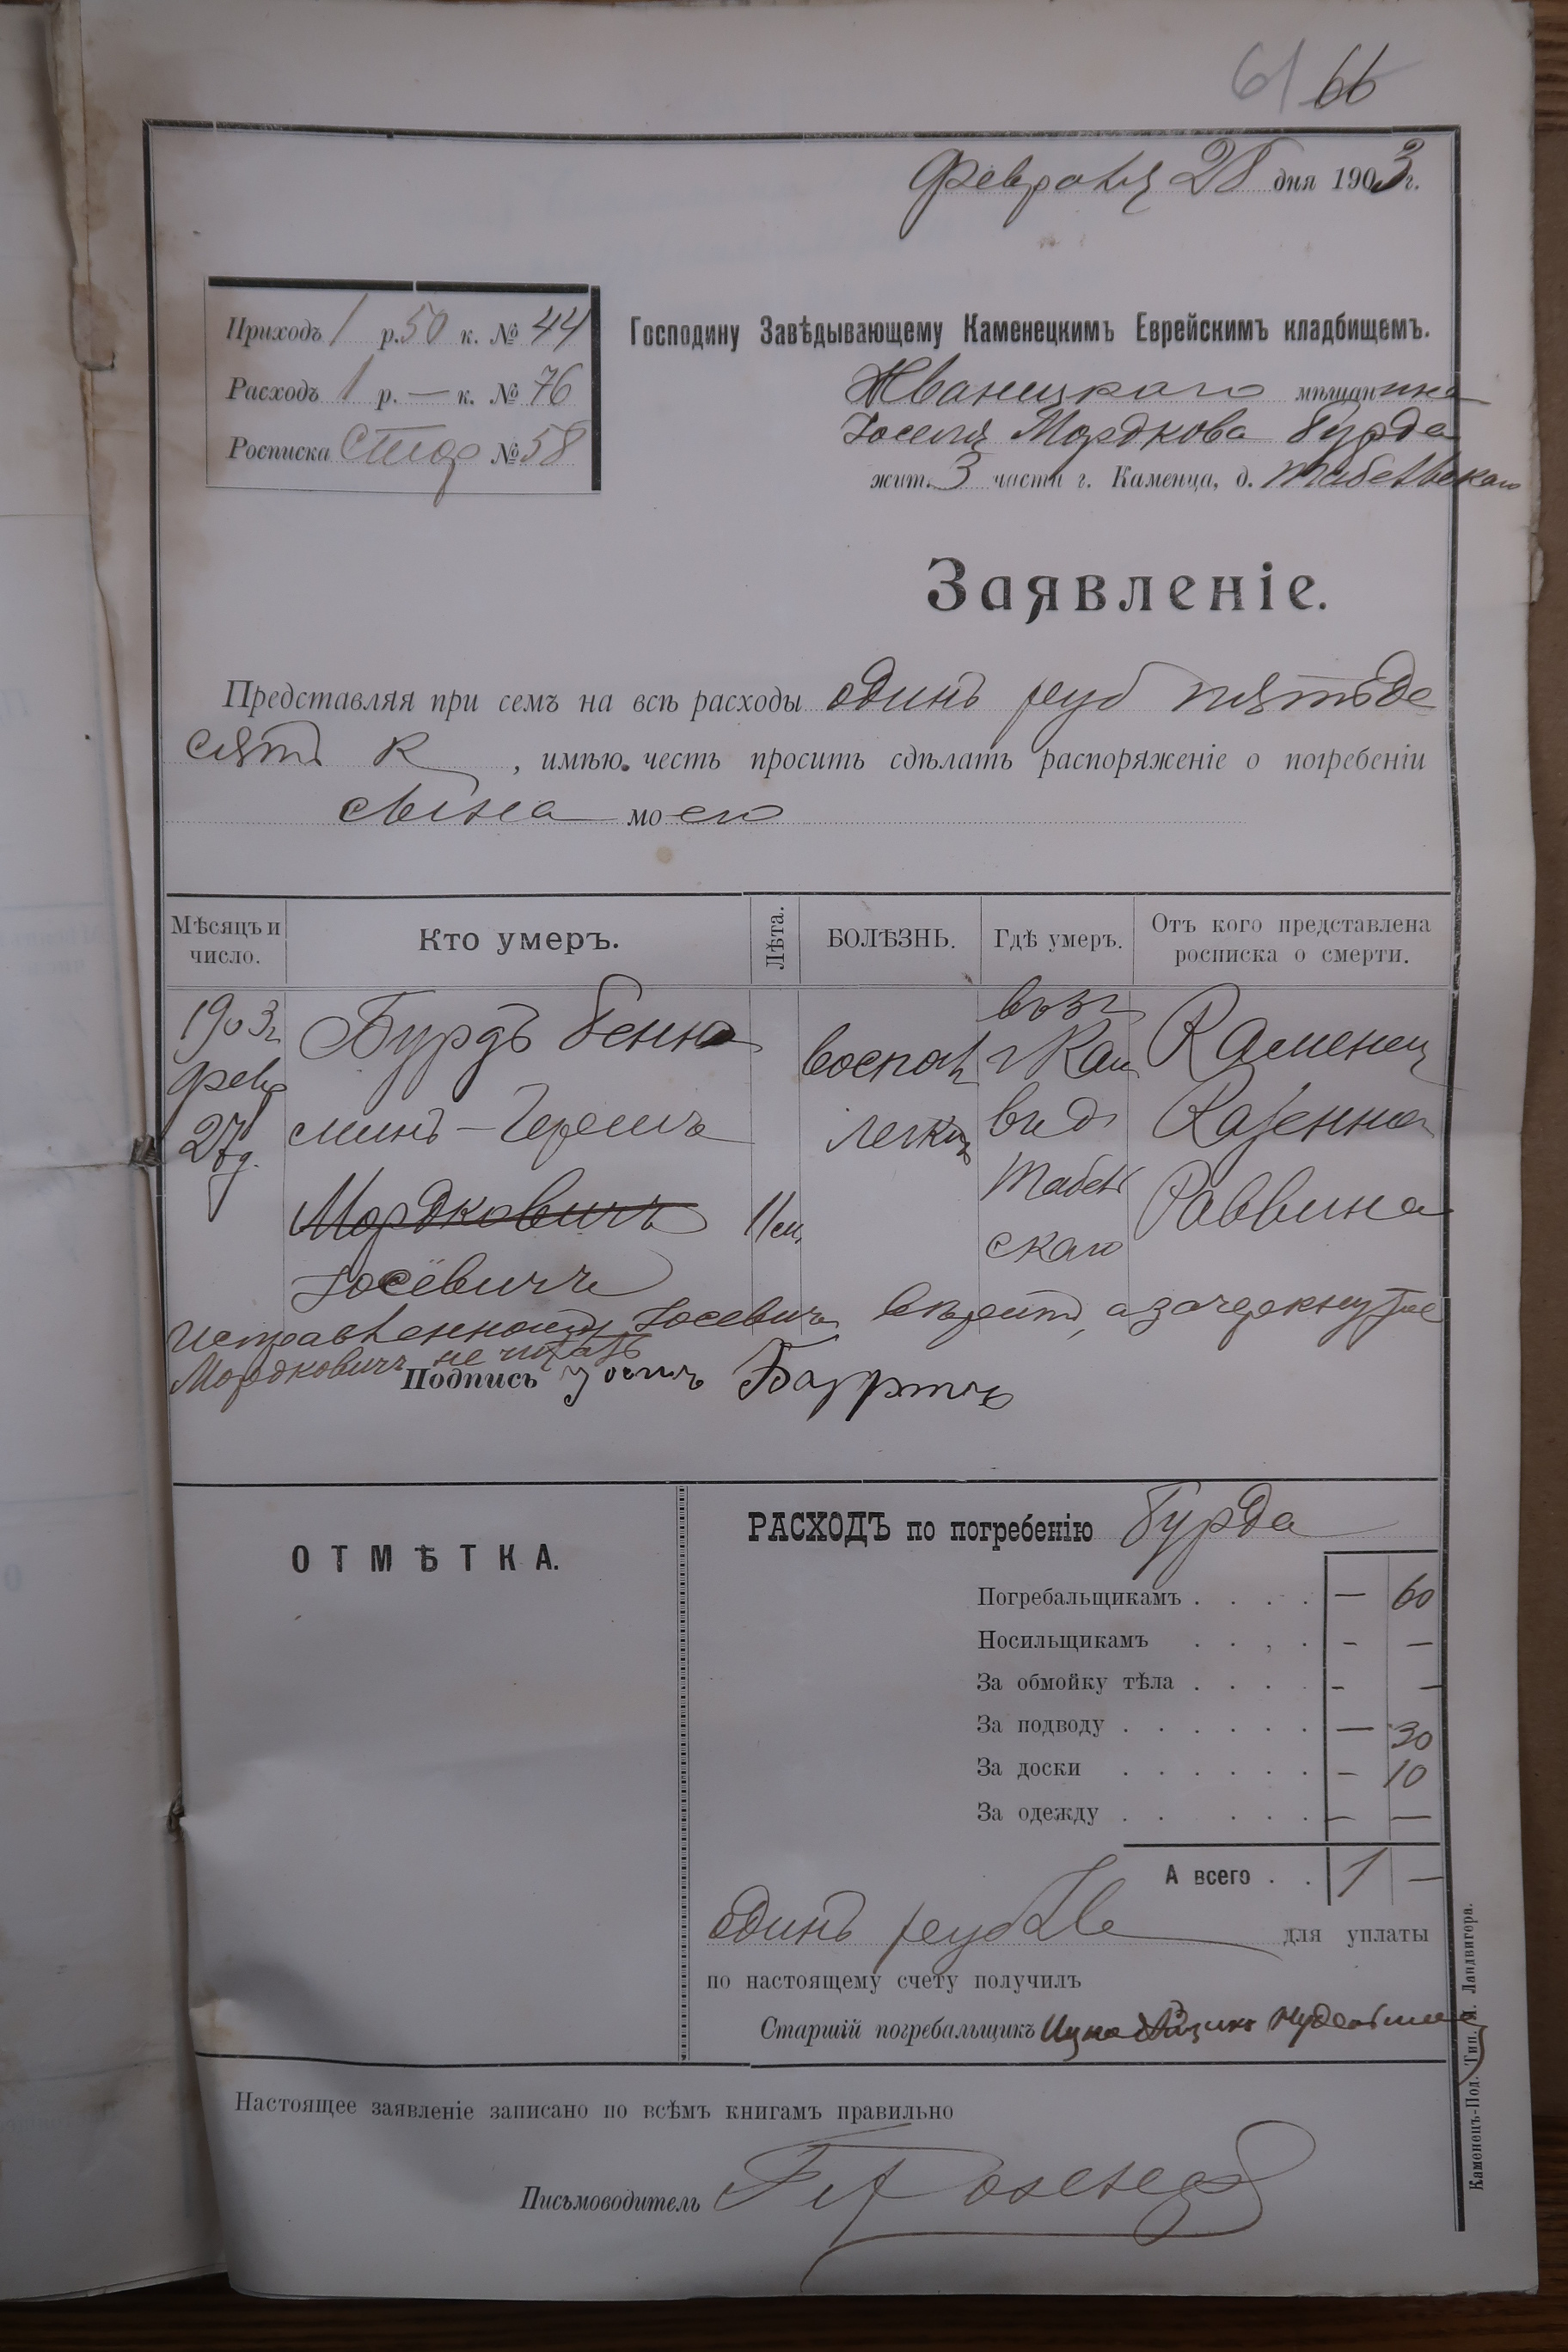 61 66
Февраля 28 дня 1903 г.
Приходъ 1 р. 50 к. № 44
Расходъ 1 р. — к. № 76
Росписка № 58
Господину Завѣдывающему Каменецкимъ Еврейскимъ кладбищемъ.
Жванецкаго мѣщанина
Іоселя Мордкова Бурда
жит. 3 части г. Каменца, д.
Заявленіе.
Представляя при семъ на всѣ расходы одинъ руб пятьде
сятъ к , имѣю честь просить сдѣлать распоряженіе о погребеніи
сына моего
Мѣсяцъ и число.
Кто умеръ.
Лѣта.
БОЛѢЗНЬ.
Гдѣ умеръ.
Отъ кого представлена росписка о смерти.
1903 г
февр
27 д.
Бурдъ Бенія
минъ - Гершъ
Мордковичъ
Іосевичъ
11 м.
воспал
легких
въ 3 ч
г Кам
въ д
скаго
Каменец
Казенна
Раввина
Исправленному Іосевичъ вѣрить, а зачеркнутое
Мордковичъ не читать
Подпись
ОТМѢТКА.
РАСХОДЪ по погребенію Бурда
Погребальщикамъ . . . . — 60
Носильщикамъ . . , . - —
За обмойку тѣла . . . . - —
За подводу . . . . . . — 30
За доски . . . . . . - 10
За одежду . . . . . . — —
А всего . . 1 —
одинъ рубль для уплаты
по настоящему счету получилъ
Старшій погребальщикъ
Настоящее заявленіе записано по всѣмъ книгамъ правильно
Письмоводитель
Каменецъ-Под. Тип. Л. Ландвигера.